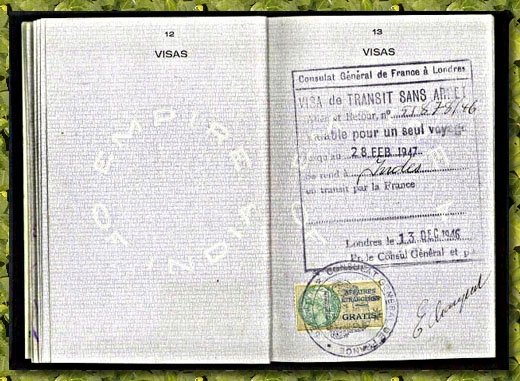 12
VISAS
13
VISAS
EMPIRE OF INDIA
Consulat Général de France à Londres
VISA de TRANSIT SANS ARRET
Aller et Retour, nº
Valable pour un seul voyage
Jusqu'au 28 FEB 1947
Se rend à Indes
en transit par la France
Londres le 13 DEC 1946
Pr le Consul Général et p
CONSULAT
AFFAIRES
ETRANGERES
GRATIS